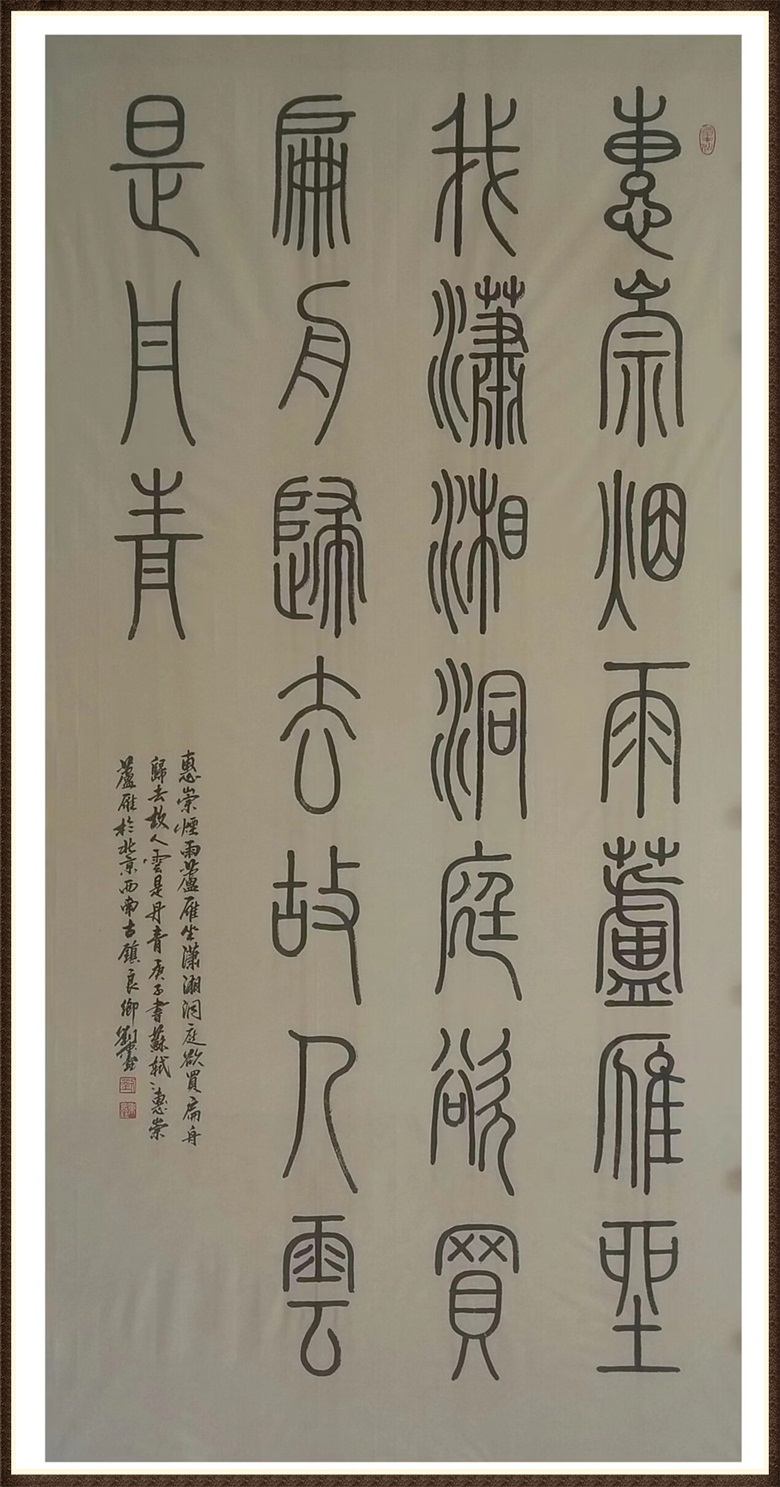 惠崇烟雨蘆雁坐
我瀟湘洞庭欲買
扁舟歸去故人雲
是丹青
惠崇煙雨蘆雁坐瀟湘洞庭欲買扁舟
歸去故人雲是丹青庚子書蘇軾之惠崇
蘆雁於北京西南古鎮良鄉劉